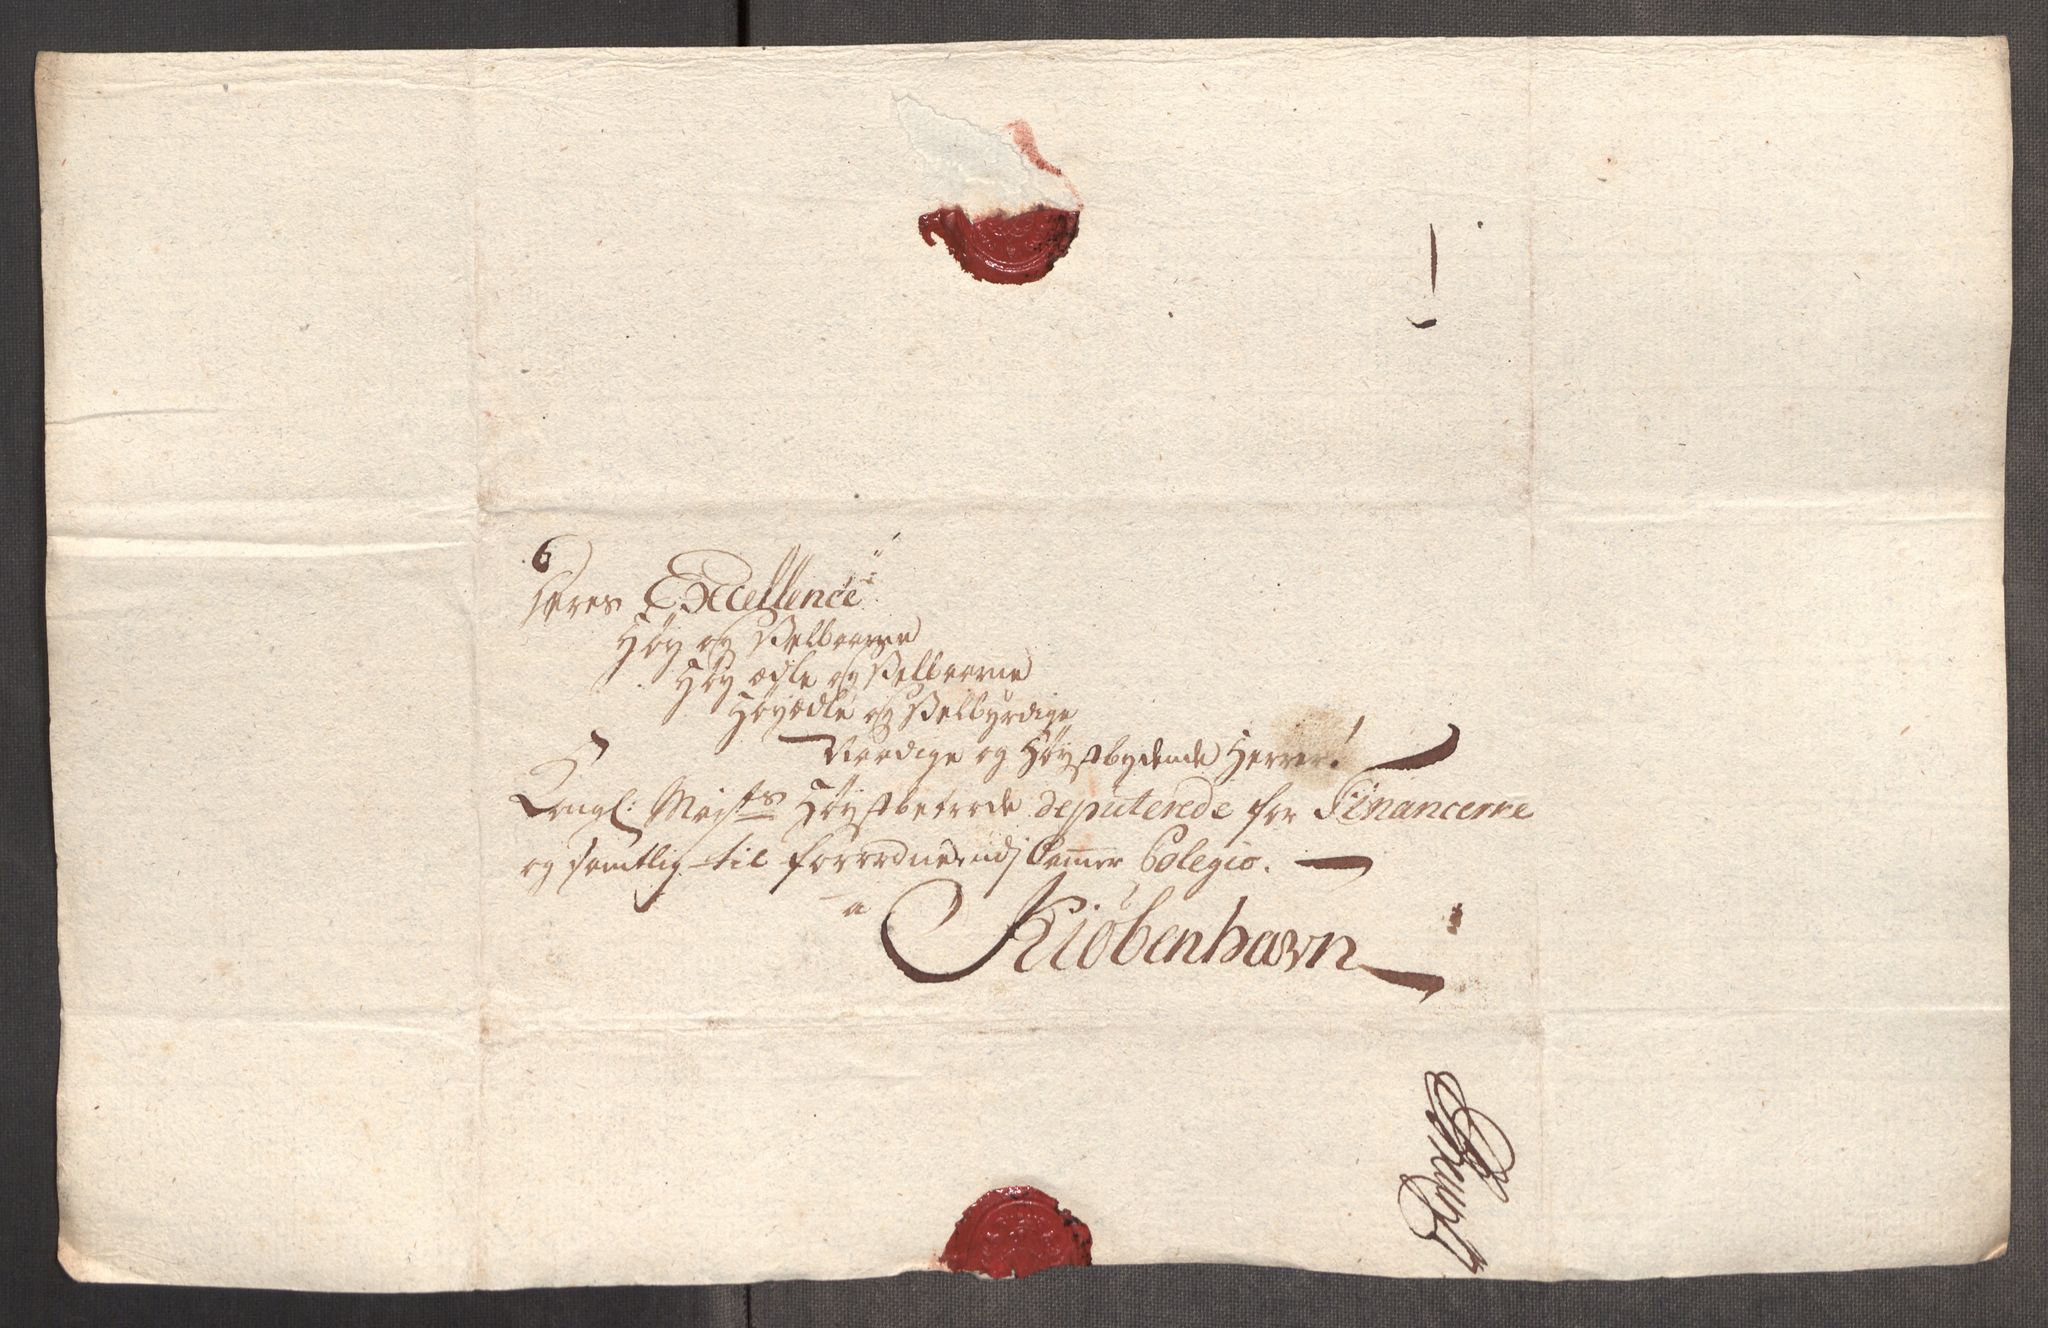 Deres Excellence
Høy og Velbaarne
Høy ædle og Velbaarne
Høyædle og Velbyrdige
Naadige og Høystbydende Herrer!
Kongl: Mayts Høystbetrode deputerede for Financerne
og samtlig til forordnende i Cammer Colegio.
a
Kiøbenhavn